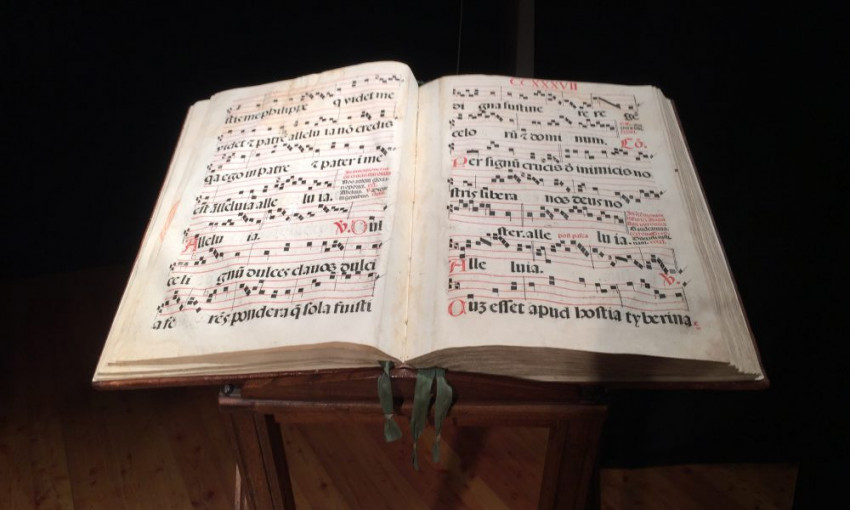 sti me philippe q videt me
videt ⁊ patrē alleluia nō credis
qa ego in patre ⁊ pater i me
est alleluia alle luia.
Allelu ia. ℣. Dul
ce li gnū dulces clavos dulci
a fe rēs pondera q sola fuisti
CCXXXVII
di gna sustine re re gē
celo rū ⁊ domi num. Cō.
Per signū crucis d inimicis no
stris libera nos deus no
ster. alle post pasca luia.
Alle luia. ℣.
Cuz esset apud hostia tyberina